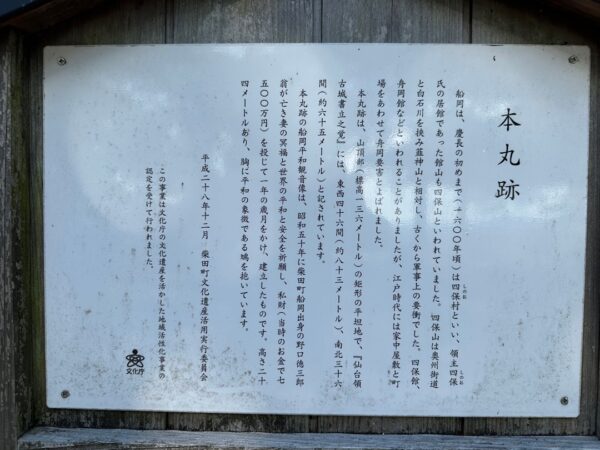 本丸跡
船岡は、慶長の初めまで（一六〇〇年頃）は四保村といい、領主四保
しのお
しのお
氏の居館であった館山も四保山といわれていました。四保山は奥州街道
と白石川を挟み韮神山と相対し、古くから軍事上の要衝でした。四保館、
舟岡館などといわれることがありましたが、江戸時代には家中屋敷と町
場をあわせて舟岡要害とよばれました。
本丸跡は、山頂部（標高一三六メートル）の矩形の平坦地で、『仙台領
古城書立之覚』には、東西四十六間（約八十三メートル）、南北三十六
間（約六十五メートル）と記されています。
本丸跡の船岡平和観音像は、昭和五十年に柴田町船岡出身の野口徳三郎
翁が亡き妻の冥福と世界の平和と安全を祈願し、私財（当時のお金で七
五〇〇万円）を投じて一年の歳月をかけ、建立したものです。高さ二十
四メートルあり、胸に平和の象徴である鳩を抱いています。
平成二十八年十二月 柴田町文化遺産活用実行委員会
この事業は文化庁の文化遺産を活かした地域活性化事業の
認定を受けて行われました。
文化庁